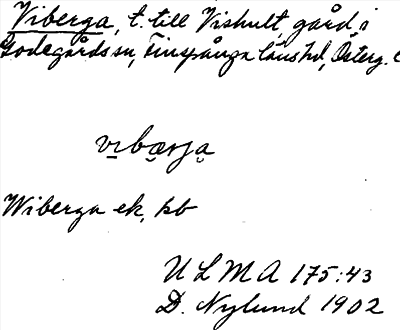 Viberga, t. till Vishult, gård, i
Godegårds sn, Finspånga läns hd, Österg. l
vibærja
Wiberga ek, kb
ULMA 175:43
D. Nylund 1902